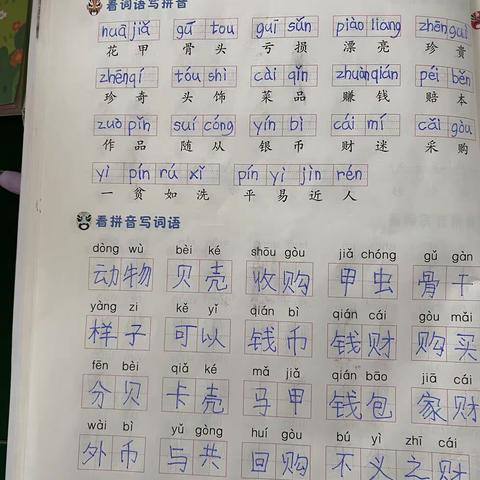 看词语写拼音
huā jiǎ gǔ tou guī sǔn piào liang zhēn guì
花 甲 骨 头 亏 损 漂 亮 珍 贵
zhēn qí tóu shì cài pǐn zhuàn qián péi běn
珍 奇 头 饰 菜 品 赚 钱 赔 本
zuò pǐn suí cóng yín bì cái mí cǎi gòu
作 品 随 从 银 币 财 迷 采 购
yì pín rú xǐ píng yì jìn rén
一 贫 如 洗 平 易 近 人
看拼音写词语
dòng wù bèi ké shōu gòu jiǎ chóng gǔ gàn
动物 贝壳 收购 甲虫 骨干
yàng zi kě yǐ qián bì qián cái gòu mǎi
样子 可以 钱币 钱财 购买
fēn bèi qiǎ ké mǎ jiǎ qián bāo jiā cái
分贝 卡壳 马甲 钱包 家财
wài bì yǔ gòng huí gòu bú yì zhī cái
外币 与共 回购 不义之财